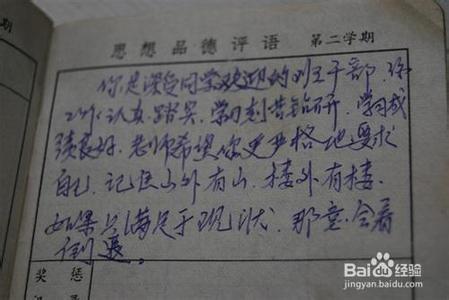 思想品德评语 第二学期
你是深受同学欢迎的 干部,你
工作认真踏实,学习刻苦钻研,学习成
绩良好。老师希望你更严格地要求
自己,记住山外有山,楼外有楼,
如果只满足于现状,那童,会着
倒退。
奖惩
Baidu 经验
jingyan.baidu.com